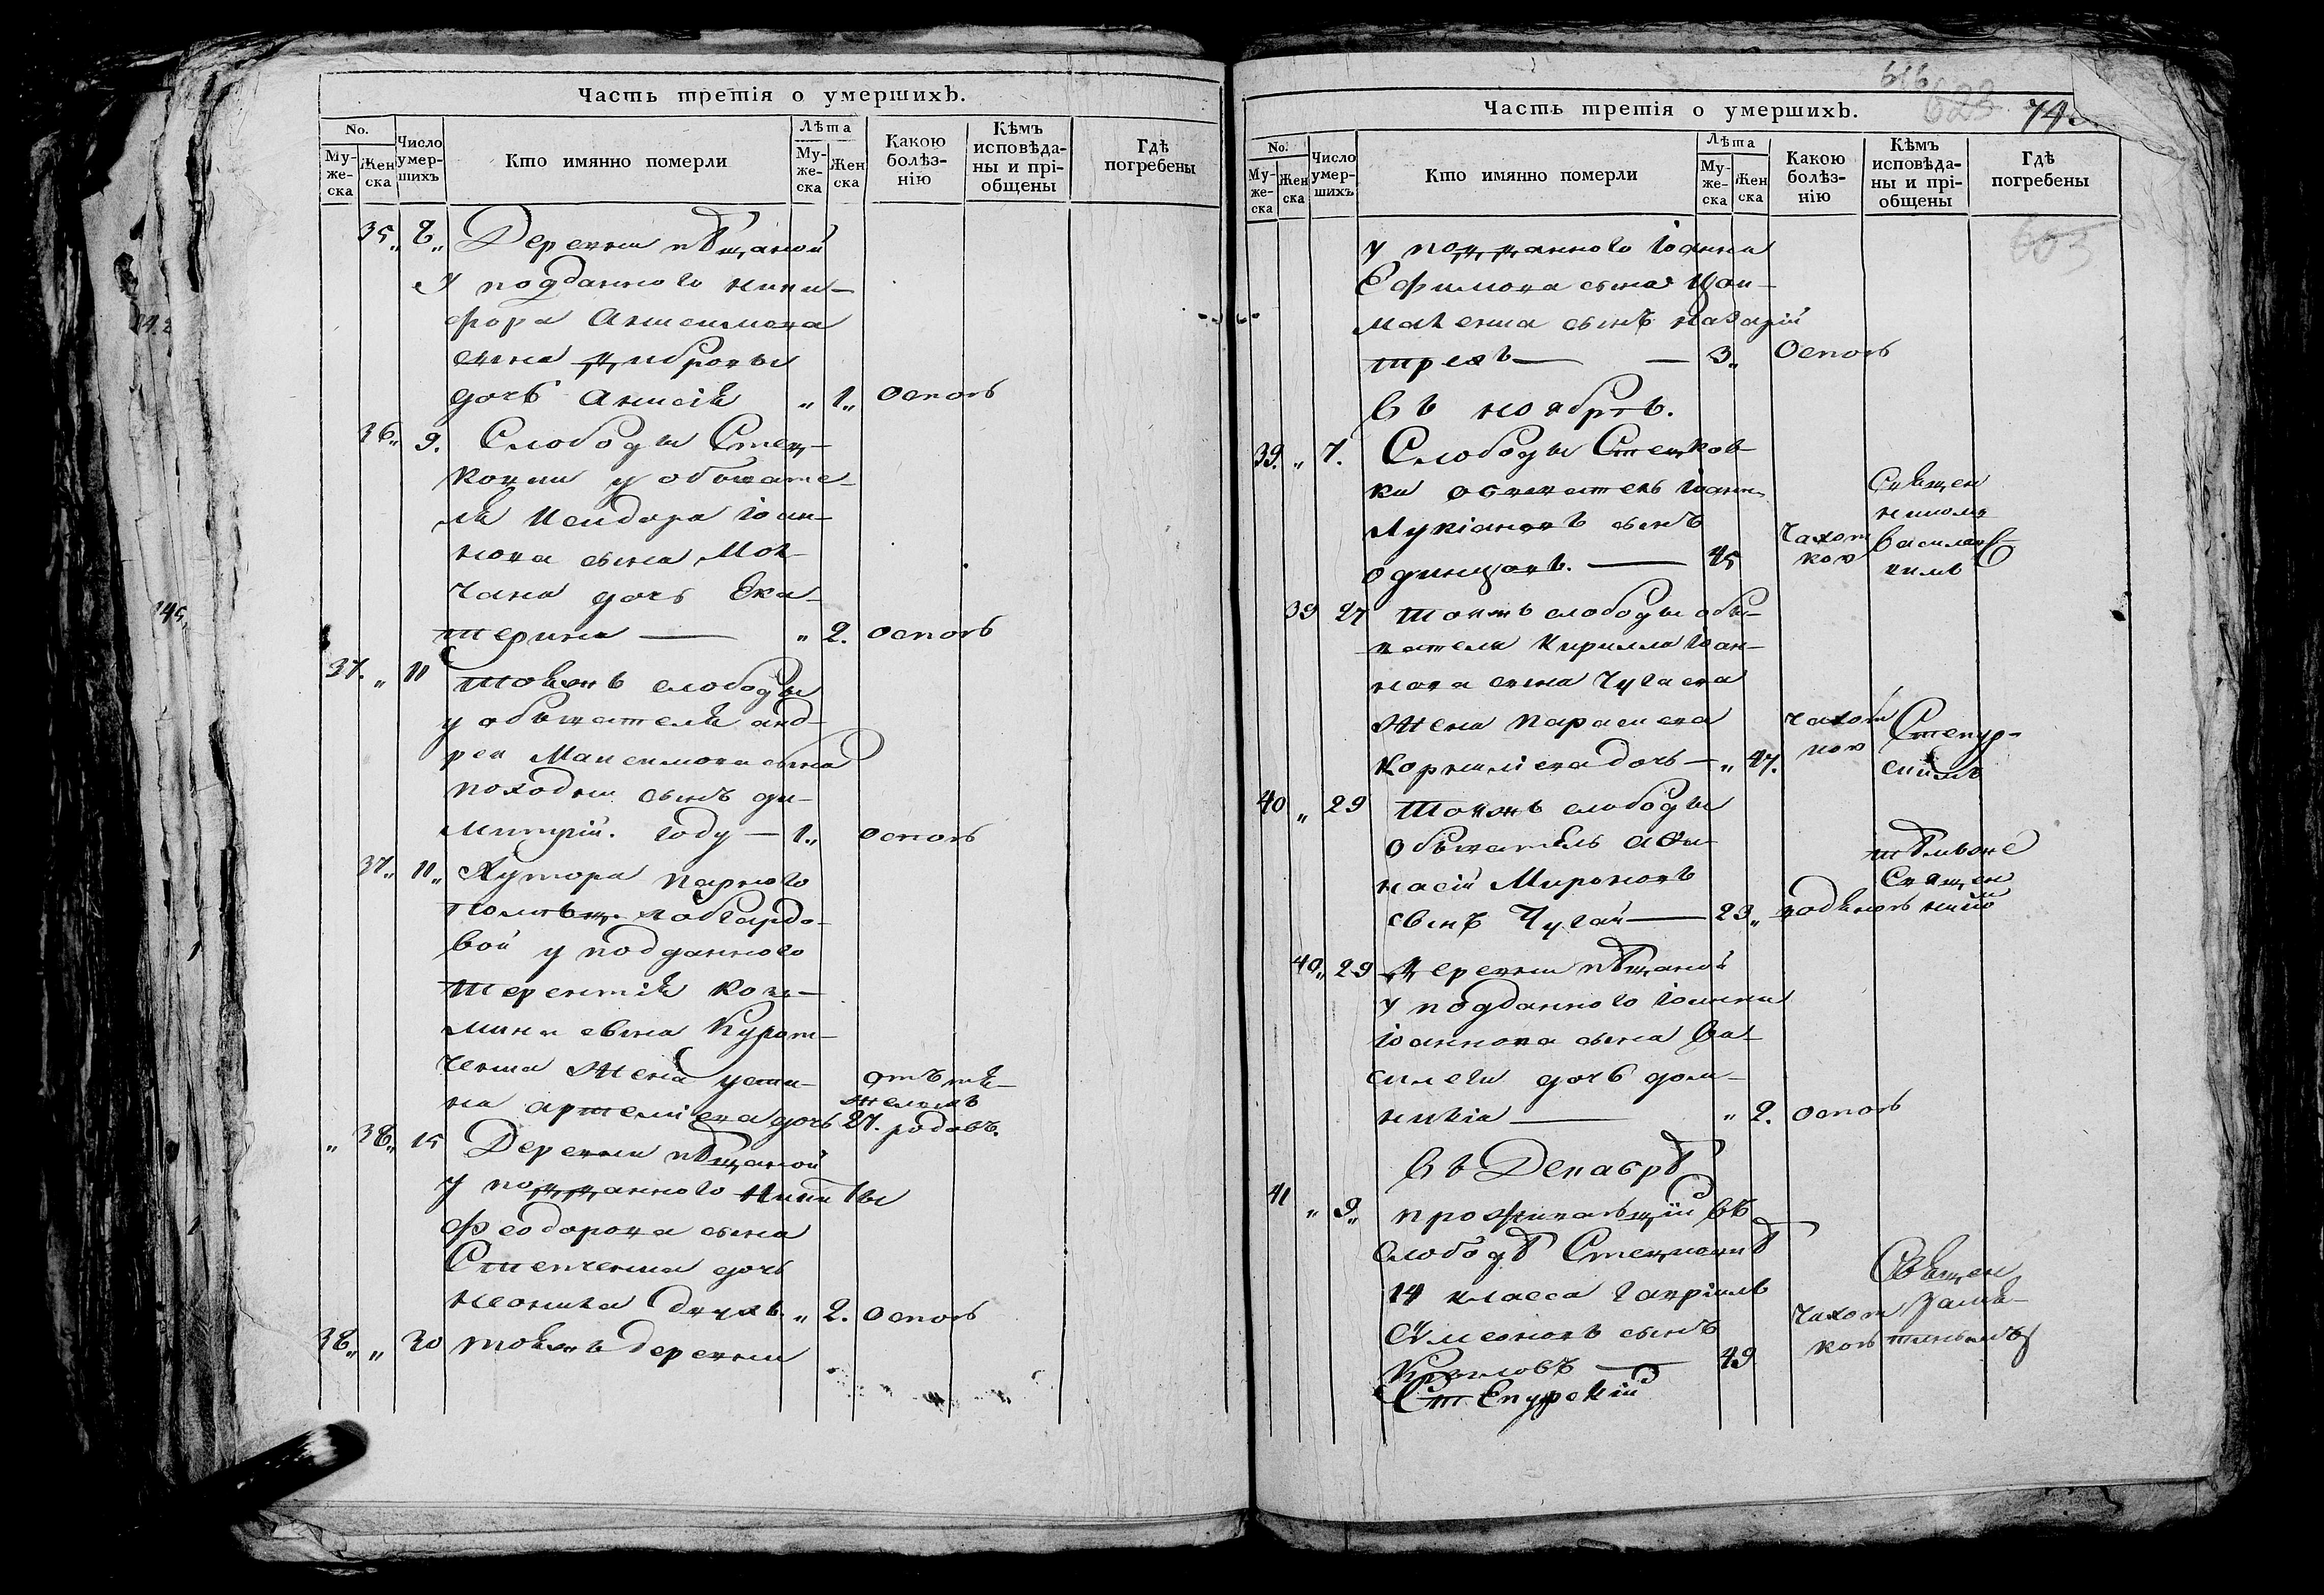 Часть третія о умершихъ.
No. Му-же-ска Жен ска Число умер-шихъ Кто имянно померли Лѣта Му-же-ска Жен ска Какою болѣз-нію Кѣмъ исповѣда-ны и прі-общены Гдѣ погребены
35„ 8„ Деревни пѣщаной
У подданного ники-
фора Анисимова
сына
дочь Анисія „ 1„ оспою
36„ 9. Слободы Стец-
ковки у обывате-
ля Исидора Іоан-
нова сына Мол-
чана дочь Ека-
терина — „ 2. оспою
37. „ 11 тояжъ слободы
у обывателя анд-
рея Максимова сына
походни сынъ ди-
митрій. году — 1„ оспою
37„ 11„ Хутора
вой у подданного
терентія козь-
мина сына Курат-
ченка жена усти- отъ тя-
на артеміева дочь 27. желыхъ родовъ.
„ 38„ 15 Деревни пѣщаной
у подданного Никиты
Феодорова сына
Степченка дочь
неонила двухъ. „ 2. оспою
38„ „ 30 тояжъ деревни
616
623 74
Часть третія о умершихъ.
No. Му-же-ска Жен ска Число умер-шихъ Кто имянно померли Лѣта Му-же-ска Жен ска Какою болѣз-нію Кѣмъ исповѣда-ны и прі-общены Гдѣ погребены
603
у подданного Іоанна
Ефимова сына
сынъ назарій
трехъ — — 3„ Оспою
Въ ноябрѣ.
39. „ 7. Слободы Стецков-
ки обыватель Іоаннъ Священ
Лукіановъ сынъ никомъ
одинцовъ. — 45 Чахот кою Василев-
39 27 тояжъ слободы обы-
вателя Кирилла Іоан-
нова сына Чугаева
жена Параскева чахот Степур-
Корниліева дочь — „ 47. кою скимъ
40 „ 29 тояжъ слободы
обыватель Афа- тѣмъ же
насій Мироновъ Священ
сынъ Чугай — 23„ водяною никомъ
40„ 29 Деревни пѣщаной
у подданного Іоанна
Іоаннова сына Ва-
дочь дом-
никія — „ 2. оспою
Въ Декабрѣ
41 „ 9„ проживающій въ
слободѣ Стецковкѣ
14 класса Гавріилъ Священ
Сімеоновъ сынъ Чахот
Крыловъ — 49 кою
Степурскій